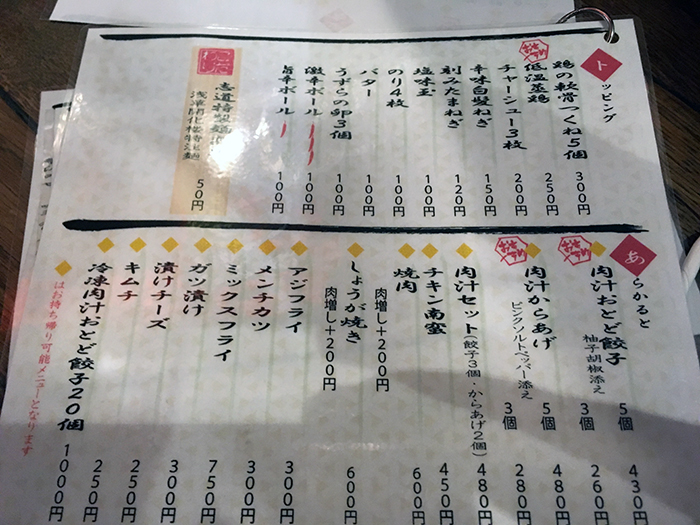 トッピング
鶏の軟骨つくね5個 300円
おすすめ
低温蒸鶏 250円
チャーシュー3枚 200円
辛味白髪ねぎ 150円
刻みたまねぎ 120円
塩味玉 100円
のり4枚 100円
バター 100円
うずらの卵3個 100円
激辛ボール 100円
旨辛ボール 100円
壱道特製麺
浅草開化楼特注麺 50円
あらかると
おすすめ
肉汁おとど餃子 5個 430円
柚子胡椒添え 3個 260円
おすすめ
肉汁からあげ 5個 480円
ピンクソルトペッパー添え 3個 280円
肉汁セット(餃子3個・からあげ2個) 480円
チキン南蛮 450円
焼肉 600円
肉増し+200円
しょうが焼き 600円
肉増し+200円
アジフライ 300円
メンチカツ 300円
ミックスフライ 750円
ガツ漬け 300円
漬けチーズ 250円
キムチ 250円
冷凍肉汁おとど餃子20個 1000円
はお持ち帰り可能メニューとなります